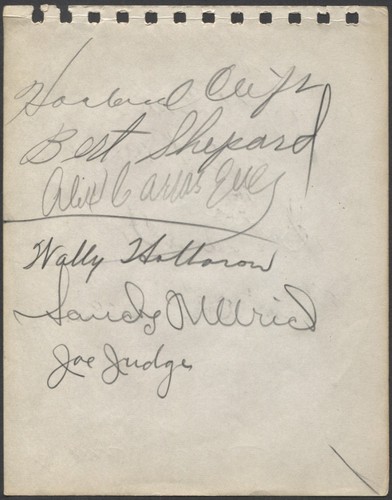 Harlond Clift
Bert Shepard
Alex Carrasquel
Wally Holborow
Sandy Ullrich
Joe Judge